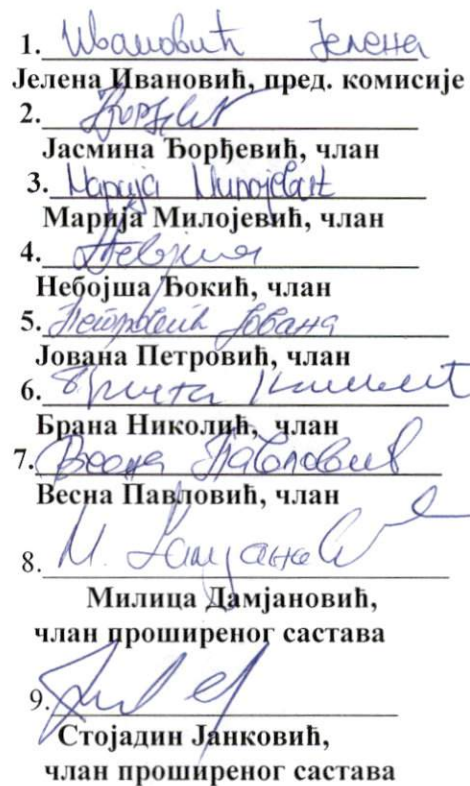 1. Ивановић Јелена
Јелена Ивановић, пред. комисије
2.
Јасмина Ђорђевић, члан
3. Марија Милојевић
Марија Милојевић, члан
4.
Небојша Ђокић, члан
5. Петровић Јована
Јована Петровић, члан
6.
Брана Николић, члан
7. Весна Павловић
Весна Павловић, члан
8. М. Дамјановић
Милица Дамјановић,
члан проширеног састава
9.
Стојадин Јанковић,
члан проширеног састава